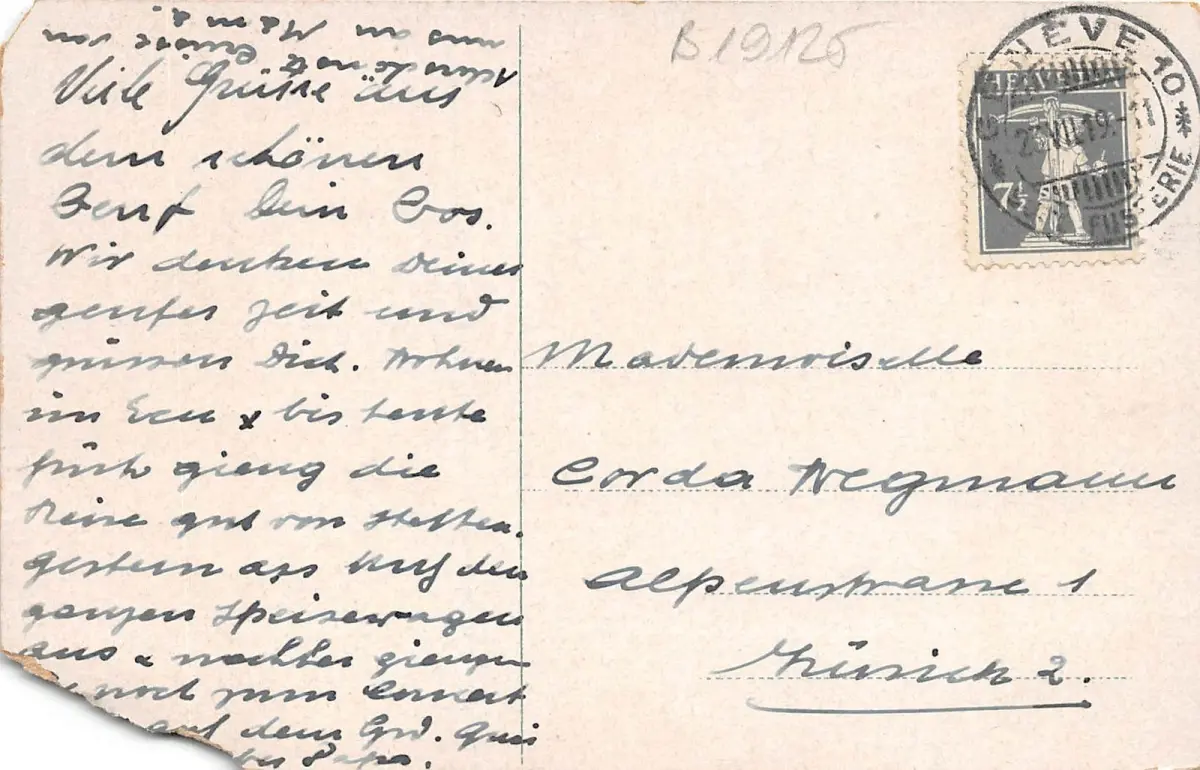 B 19126
Viele Grüsse aus
dem schönen
Genf Dein Cos.
Wir denken Deiner
genfer Zeit und
grüssen Dich. Wohnen
im Ecu & bis heute
früh gieng die
Reise gut von statten.
gestern ass Ruf den
ganzen Speisewagen
aus & nachher giengen
noch zum Concert
auf dem Grd. Quai
Papa.
uns an Mama.
Grüsse von
GENÈVE 10
HELVETIA
VII.19.-11
7½
FUSTERIE
Mademoiselle
Corda Wegmann
Alpenstrasse 1
Zürich 2.